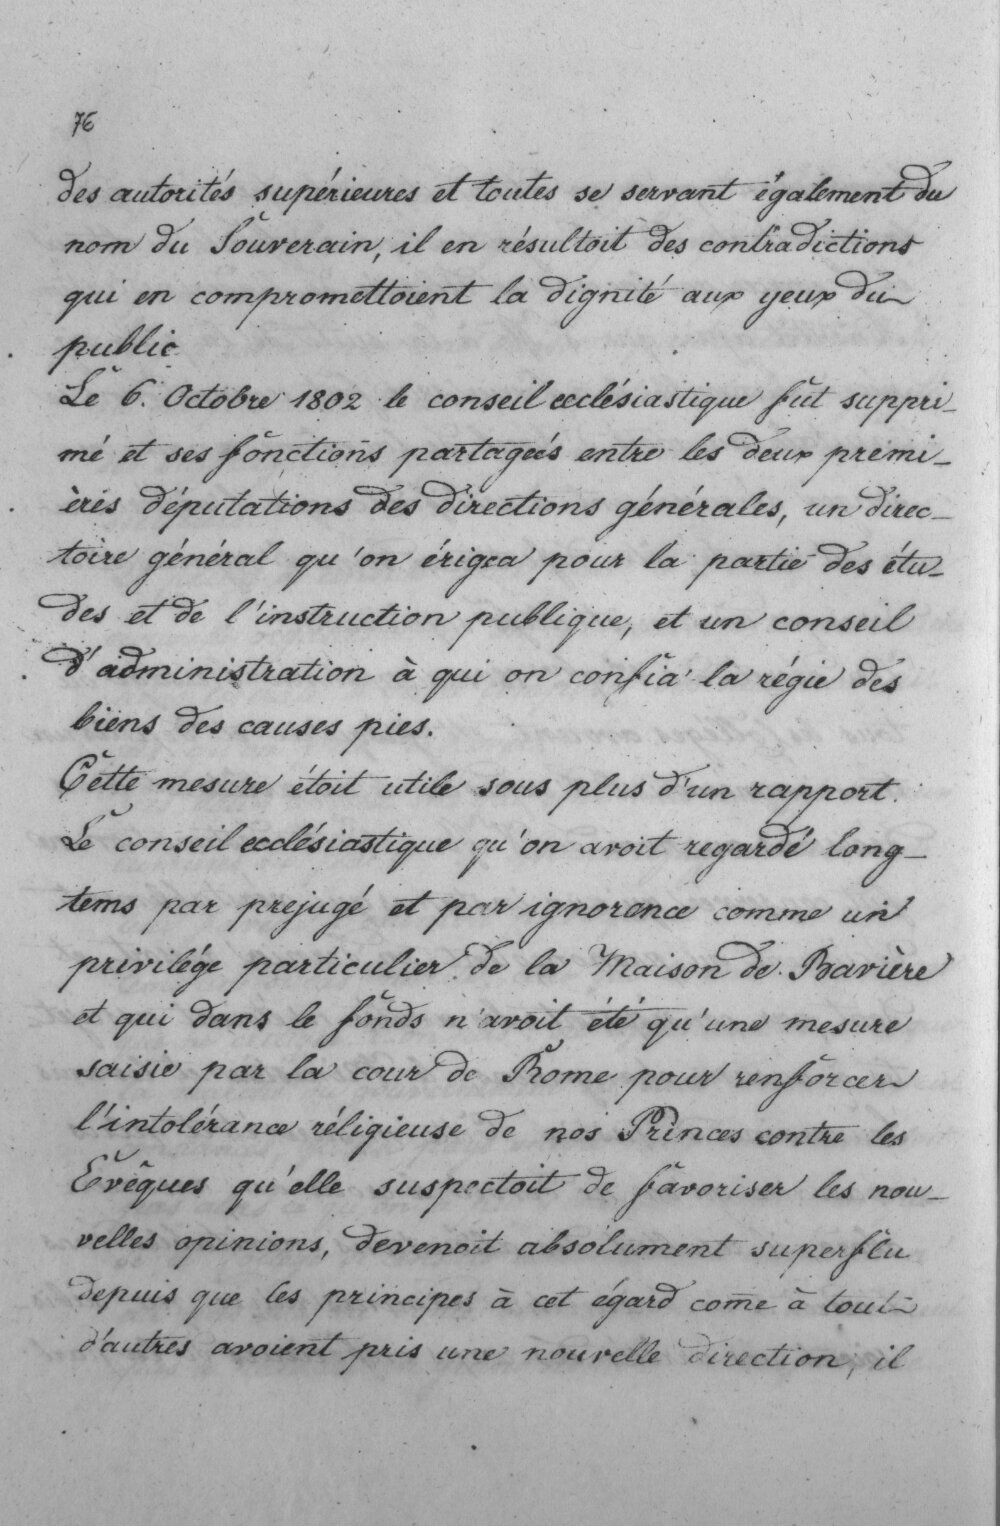 76
des autorités supérieures et toutes se servant également du
nom du Souverain, il en résultoit des contradictions
qui en compromettoient la dignité aux yeux du
public
Le 6. Octobre 1802 le conseil ecclésiastique fut suppri-
mé et ses fonctions partageés entre les deux premi-
ères députations des directions générales, un direc-
toire général qu'on érigea pour la partie des étu-
des et de l'instruction publique, et un conseil
d'administration à qui on confia la régie des
biens des causes pies.
Cette mesure étoit utile sous plus d'un rapport.
Le conseil ecclésiastique qu'on avoit regardé long-
tems par prejugé et par ignorence comme un
privilége particulier de la Maison de Bavière
et qui dans le fonds n'avoit été qu'une mesure
saisie par la cour de Rome pour renforcer
l'intolérance réligieuse de nos Princes contre les
Evêques qu'elle suspectoit de favoriser les nou-
velles opinions, devenoit absolument superflu
depuis que les principes à cet égard com̄e à tout
d'autres avoient pris une nouvelle direction, il